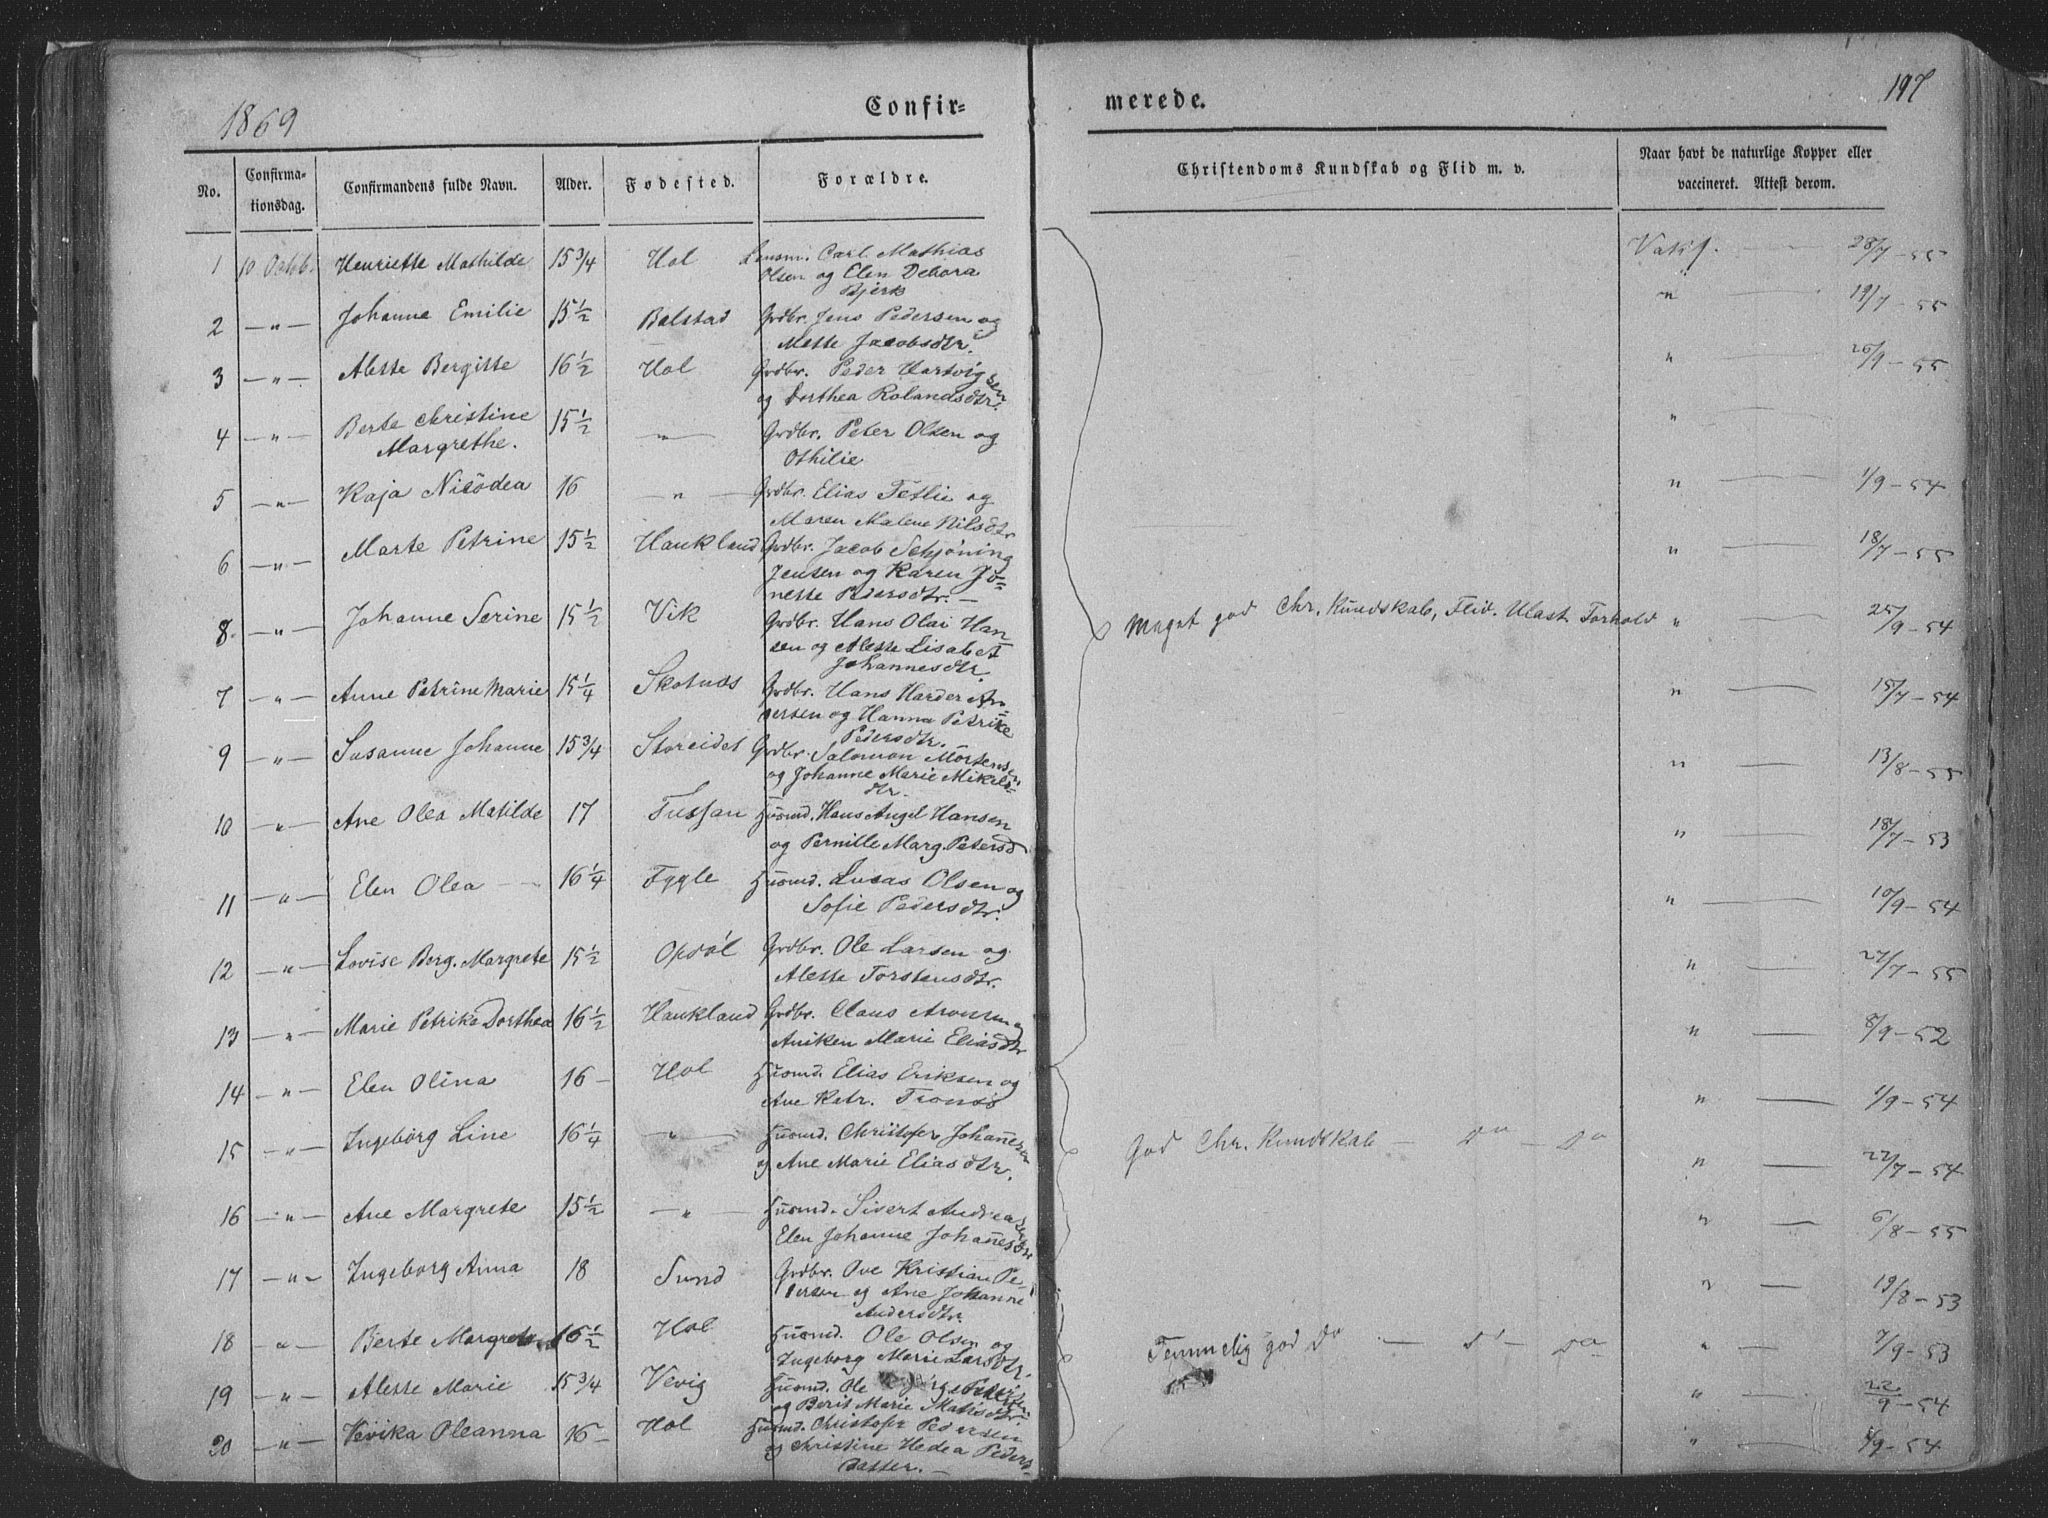 1869
Confir-
merede.
197
No.
Confirma-
tionsdag.
Confirmandens fulde Navn.
Alder.
Fødested.
Forældre.
Christendoms Kundskab og Flid m. v.
Naar havt de naturlige Kopper eller
vaccineret. Attest derom.
1 10 Octob. Henriette Mathilde 15 3/4 Hol Lensm. Carl Mathias
Olsen og Elen Debora
Bjerk
Vakc. — 28/7 - 55
2 -"- Johanna Emilie 15 1/2 Balstad Grdbr. Jens Pedersen og
Mette Jacobsdtr.
" — 19/7 - 55
3 -"- Alette Bergitte 16 1/2 Hol Grdbr. Peder Hartvigsen
og Dorthea Rolandsdtr.
" — 26/9 - 55
4 -"- Berte Christine 15 1/2 -"- Grdbr. Peter Olsen og
Margrethe.
Othilie
"
5 -"- Kaja Nicodea 16 -"- Grdbr. Elias Tetlie og
Maren Malene Nilsdtr
" — 1/9 - 54
6 -"- Marte Petrine 15 1/2 Haukland Grdbr. Jacob Schjøning
Jensen og Karen Jo=
nette Pedersdtr. —
" — 18/7 - 55
8. -"- Johanne Serine 15 1/2 Vik Grdbr. Hans Olai Han
sen og Alette Lisabet
Johannesdtr.
Meget god Chr. Kundskab, Flid. Ulast. Forhold " — 25/9 - 54
7 -"- Anne Petrine Marie 15 1/4 Skotnæs Grdbr. Hans Harder An
dersen og Hanna Petrike
Pedersdtr.
" — 15/7 - 54
9 -"- Susanne Johanne 15 3/4 Storeidet Grdbr. Salomon Mortensen
og Johanne Marie Mikels-
dtr.
" — 13/8 - 55
10 -"- Ane Olea Matilde 17 Tussan Husmd. Hans Angel Hansen
og Pernille Marg. Petersd
" — 18/7 - 53
11 -"- Elen Olea — 16 1/4 Fygle Husmd. Lucas Olsen og
Sofie Pedersdtr.
" — 10/9 - 54
12 -"- Lovise Berg. Margrete 15 1/2 Opdøl Grdbr. Ole Larsen og
Alette Torstensdtr.
" — 27/7 - 55
13 -"- Marie Petrike Dorthea 16 1/2 Haukland Grdbr. Claus Aronsen og
Aniken Marie Eliasdtr
" — 8/9 - 52
14 -"- Elen Olina 16 - Hol Husmd. Elias Eriksen og
Ane Katr. Tronsd
" — 1/9 - 54
15 -"- Ingeborg Line 16 1/4 -"- Husmd. Christofer Johannesen
og Ane Marie Eliasdtr.
God Chr. Kundskab — Do — Do
" — 22/7 - 54
16 -"- Ane Margrete 15 1/2 -"- Husmd. Sivert Andreasen
Elen Johanne Johannesdtr
" — 6/8 - 55
17 -"- Ingeborg Anna 18 Sund Grdbr. Ove Kristian Pe-
dersen og Ane Johanne
Andersdtr.
" — 19/8 - 53
18 " Berte Margrete 16 1/2 Hol Husmd. Ole Olsen og
Ingeborg Marie Larsdtr.
Temmelig god Do — Do — Do
" — 7/9 - 53
19 -"- Alette Marie 15 3/4 Vevig Husmd. Ole
og Berit Marie Matisdtr.
" — 22/9 - 54
20 -"- Vevika Oleanna 16 - Hol Husmd. Christofer Pedersen
og Christine Hedea Peders-
datter. —
" — 1/9 - 54